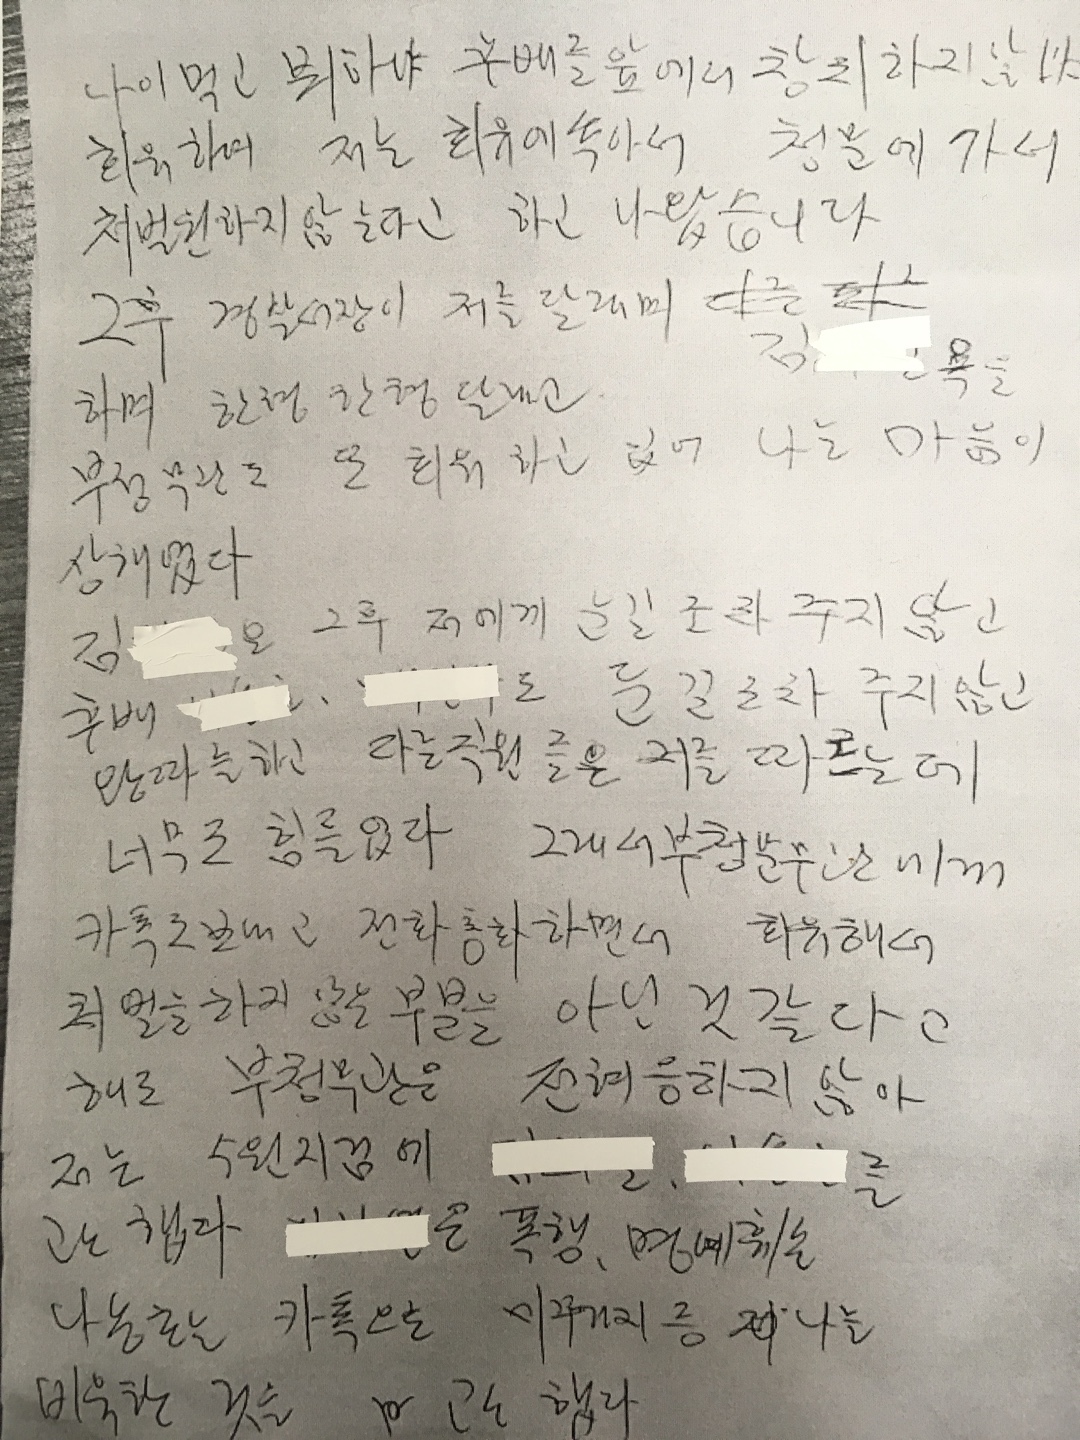 나이먹고 뭐하냐 후배들앞에서 창피하지않냐
회유하며 저는 회유에속아서 청문에 가서
처벌원하지않는다고 하고 나왔습니다
그후 경찰서장이 저를달래며
김 욕을
하며 한형 한형 달래고
부청문관도 또 회유하고 있어 나는 마음이
상해였다
김 은 그후 저에게 눈길조차 주지않고
후배 , 도 눈길조차 주지않고
왕따를하고 다른직원들은 저를 따르는데
너무도 힘들었다 그래서부청문관에게
카톡도보내고 전화통화하면서 회유해서
처벌을하지않는부분을 아닌것같다고
해도 부청문관은 전혀응하지않아
저는 5월지검에 를
고소했다 은 폭행, 명예훼손
나눈는 카톡으는 미꾸라지 등 나는
비유한 것을 고소했다